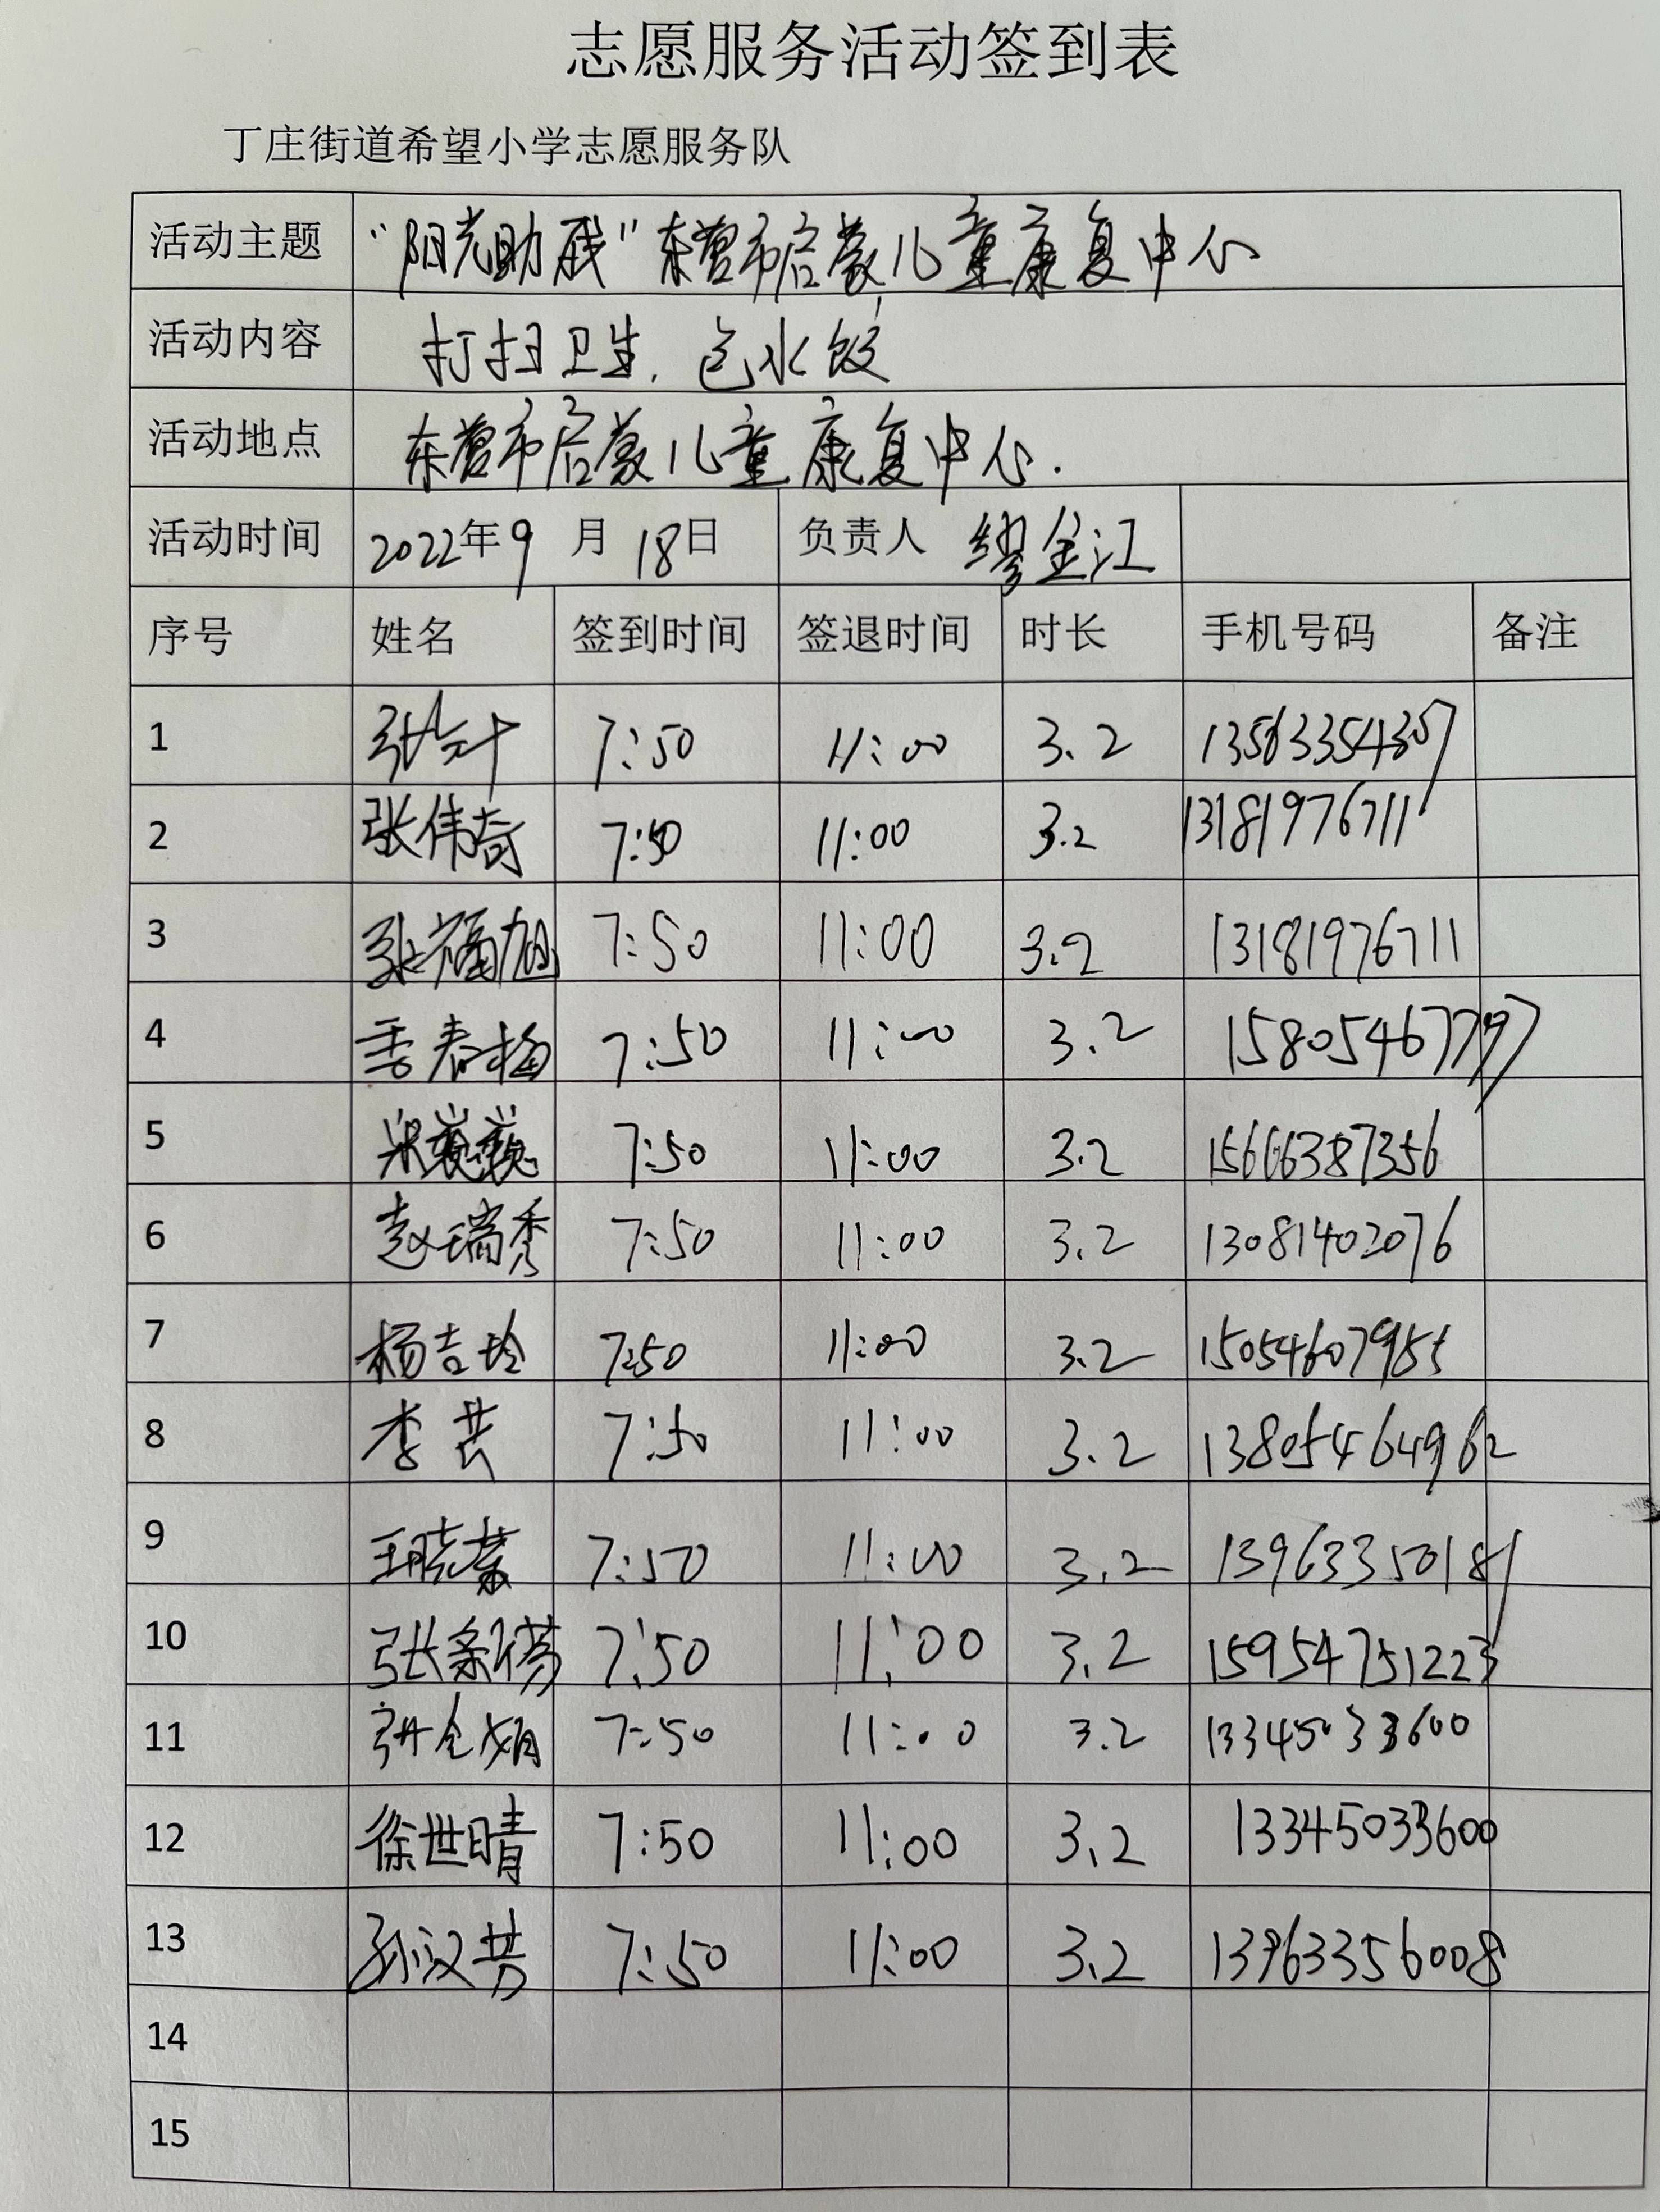 志愿服务活动签到表
丁庄街道希望小学志愿服务队
活动主题 “阳光助残”东营市启蒙儿童康复中心
活动内容 打扫卫生,包水饺
活动地点 东营市启蒙儿童康复中心.
活动时间 2022年9月18日 负责人 缪金江
序号 姓名 签到时间 签退时间 时长 手机号码 备注
1 7:50 11:00 3.2 13563354307
2 张伟奇 7:50 11:00 3.2 13181976711
3 张福旭 7:50 11:00 3.2 13181976711
4 季春梅 7:50 11:00 3.2 15805467797
5 梁巍巍 7:50 11:00 3.2 15666387356
6 赵瑞秀 7:50 11:00 3.2 13081402076
7 杨吉玲 7:50 11:00 3.2 15054607955
8 李芸 7:50 11:00 3.2 13805464962
9 王晓荣 7:50 11:00 3.2 13963350181
10 7:50 11:00 3.2 15954751223
11 7:50 11:00 3.2 13345033600
12 徐世晴 7:50 11:00 3.2 13345033600
13 孙汉芳 7:50 11:00 3.2 13963356008
14
15